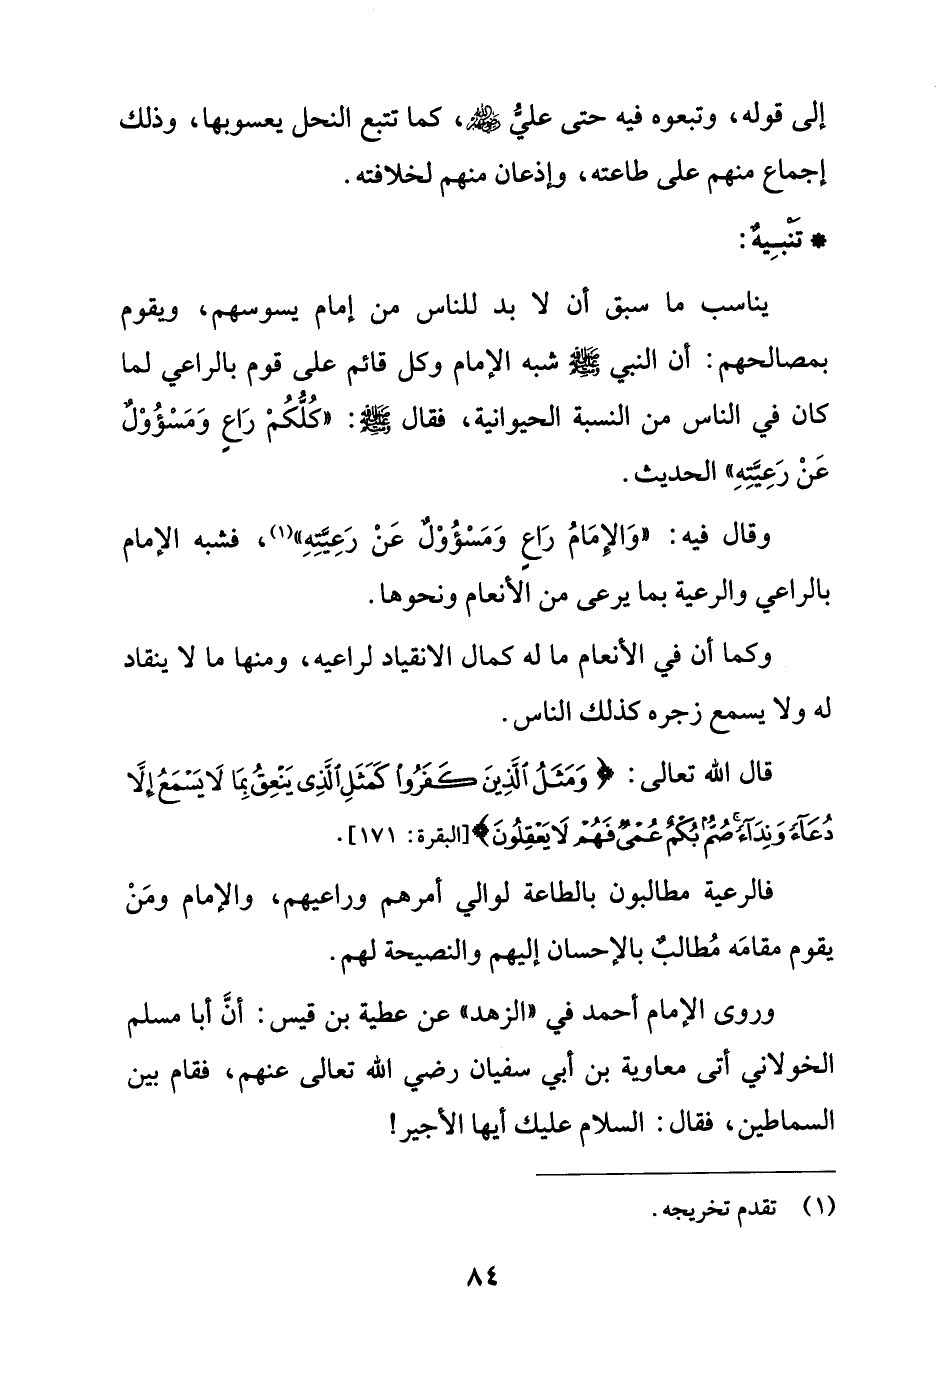 إلى قوله، وتبعوه فيه حتى عليٌّ رضي الله عنه، كما تتبع النحل يعسوبها، وذلك
إجماع منهم على طاعته، وإذعان منهم لخلافته.
* تَنْبِيهٌ:
يناسب ما سبق أن لا بد للناس من إمام يسوسهم، ويقوم
بمصالحهم: أن النبي ﷺ شبه الإمام وكل قائم على قوم بالراعي لما
كان في الناس من النسبة الحيوانية، فقال ﷺ: «كُلُّكُمْ رَاعٍ وَمَسْؤُوْلٌ
عَنْ رَعِيَّتِهِ» الحديث.
وقال فيه: «وَالإِمَامُ رَاعٍ وَمَسْؤُوْلٌ عَنْ رَعِيَّتِهِ»(١)، فشبه الإمام
بالراعي والرعية بما يرعى من الأنعام ونحوها.
وكما أن في الأنعام ما له كمال الانقياد لراعيه، ومنها ما لا ينقاد
له ولا يسمع زجره كذلك الناس.
قال الله تعالى: ﴿وَمَثَلُ الَّذِينَ كَفَرُوا كَمَثَلِ الَّذِي يَنْعِقُ بِمَا لَا يَسْمَعُ إِلَّا
دُعَاءً وَنِدَاءً صُمٌّ بُكْمٌ عُمْيٌ فَهُمْ لَا يَعْقِلُونَ﴾ [البقرة: ١٧١].
فالرعية مطالبون بالطاعة لوالي أمرهم وراعيهم، والإمام ومَنْ
يقوم مقامَه مُطالبٌ بالإحسان إليهم والنصيحة لهم.
وروى الإمام أحمد في «الزهد» عن عطية بن قيس: أنَّ أبا مسلم
الخولاني أتى معاوية بن أبي سفيان رضي الله تعالى عنهم، فقام بين
السماطين، فقال: السلام عليك أيها الأجير!
(١) تقدم تخريجه.
٨٤